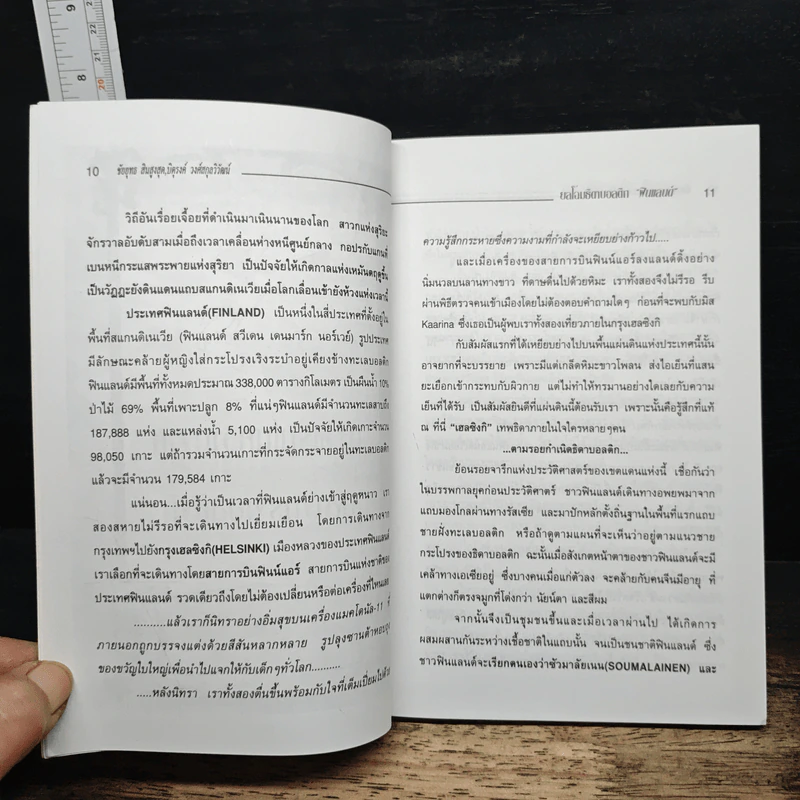 9
8
20
21
10 ชัยยุทธ สินสูงสุด,บิดุรงค์ วงศ์สกุลวิวัฒน์
วิถีอันเรื่อยเจื้อยที่ดำเนินมาเนิ่นนานของโลก สาวกแห่งสุริยะ
จักรวาลอับดับสามเมื่อถึงเวลาเคลื่อนห่างหนีศูนย์กลาง กอปรกับแกนที่
เบนหนีกระแสพระพายแห่งสุริยา เป็นปัจจัยให้เกิดกาลแห่งเหมันตฤดูขึ้น
เป็นวัฏฏะยังดินแดนแถบสแกนดิเนเวียเมื่อโลกเลื่อนเข้ายังห้วงแห่งเวลานี้
ประเทศฟินแลนด์(FINLAND) เป็นหนึ่งในสี่ประเทศที่ตั้งอยู่ใน
พื้นที่สแกนดิเนเวีย (ฟินแลนด์ สวีเดน เดนมาร์ก นอร์เวย์) รูปประเทศ
มีลักษณะคล้ายผู้หญิงใส่กระโปรงเริงระบำอยู่เคียงข้างทะเลบอลติก
ฟินแลนด์มีพื้นที่ทั้งหมดประมาณ 338,000 ตารางกิโลเมตร เป็นผืนน้ำ 10%
ป่าไม้ 69% พื้นที่เพาะปลูก 8% ที่แน่ๆฟินแลนด์มีจำนวนทะเลสาบถึง
187,888 แห่ง และแหล่งน้ำ 5,100 แห่ง เป็นปัจจัยให้เกิดเกาะจำนวน
98,050 เกาะ แต่ถ้ารวมจำนวนเกาะที่กระจัดกระจายอยู่ในทะเลบอลติก
แล้วจะมีจำนวน 179,584 เกาะ
แน่นอน...เมื่อรู้ว่าเป็นเวลาที่ฟินแลนด์ย่างเข้าสู่ฤดูหนาว เรา
สองสหายไม่รีรอที่จะเดินทางไปเยี่ยมเยือน โดยการเดินทางจาก
กรุงเทพฯไปยังกรุงเฮลซิงกิ(HELSINKI) เมืองหลวงของประเทศฟินแลนด์
เราเลือกที่จะเดินทางโดยสายการบินฟินน์แอร์ สายการบินแห่งชาติของ
ประเทศฟินแลนด์ รวดเดียวถึงโดยไม่ต้องเปลี่ยนหรือต่อเครื่องที่ไหนเลย
..........แล้วเราก็นิทราอย่างอิ่มสุขบนเครื่องแมคโดนัล-11 ที่
ภายนอกถูกบรรจงแต่งด้วยสีสันหลากหลาย รูปลุงซานต้าหอบถุง
ของขวัญใบใหญ่เพื่อนำไปแจกให้กับเด็กๆทั่วโลก..........
.....หลังนิทรา เราทั้งสองตื่นขึ้นพร้อมกับใจที่เต็มเปี่ยมไปด้วย
ยลโฉมธิดาบอลติก "ฟินแลนด์" 11
ความรู้สึกกระหายซึ่งความงามที่กำลังจะเหยียบย่างก้าวไป.....
และเมื่อเครื่องของสายการบินฟินน์แอร์ลงแลนด์ดิ้งอย่าง
นิ่มนวลบนลานทางขาว ที่ดาษดื่นไปด้วยหิมะ เราทั้งสองจึงไม่รีรอ รีบ
ผ่านพิธีตรวจคนเข้าเมืองโดยไม่ต้องตอบคำถามใดๆ ก่อนที่จะพบกับมิส
Kaarina ซึ่งเธอเป็นผู้พบเราทั้งสองเที่ยวภายในกรุงเฮลซิงกิ
กับสัมผัสแรกที่ได้เหยียบย่างไปบนพื้นแผ่นดินแห่งประเทศนี้นั้น
อาจยากที่จะบรรยาย เพราะมีแต่เกล็ดหิมะขาวโพลน ส่งไอเย็นที่แสน
ยะเยือกเข้ากระทบกับผิวกาย แต่ไม่ทำให้ทรมานอย่างใดเลยกับความ
เย็นที่ได้รับ เป็นสัมผัสยินดีที่แผ่นดินนี้ต้อนรับเรา เพราะนั้นคือรู้สึกที่แท้
ณ ที่นี่ "เฮลซิงกิ" เทพธิดาภายในใจใครหลายๆคน
...ตามรอยกำเนิดธิดาบอลติก...
ย้อนรอยจารึกแห่งประวัติศาสตร์ของเขตแดนแห่งนี้ เชื่อกันว่า
ในบรรพกาลยุคก่อนประวัติศาตร์ ชาวฟินแลนด์เดินทางอพยพมาจาก
แถบมองโกลทางรัสเซีย และมาปักหลักตั้งถิ่นฐานในพื้นที่แรกแถบ
ชายฝั่งทะเลบอลติก หรือถ้าดูตามแผนที่จะเห็นว่าอยู่ตามแนวชาย
กระโปรงของธิดาบอลติก ฉะนั้นเมื่อสังเกตหน้าตาของชาวฟินแลนด์จะมี
เค้าทางเอเซียอยู่ ซึ่งบางคนเมื่อแก่ตัวลง จะคล้ายกับคนจีนมีอายุ ที่
แตกต่างก็ตรงจมูกที่โด่งกว่า นัยน์ตา และสีผม
จากนั้นจึงเป็นชุมชนขึ้นและเมื่อเวลาผ่านไป ได้เกิดการ
ผสมผสานกันระหว่างเชื้อชาติในแถบนั้น จนเป็นชนชาติฟินแลนด์ ซึ่ง
ชาวฟินแลนด์จะเรียกตนเองว่าซัวมาลัยเนน(SOUMALAINEN) และ